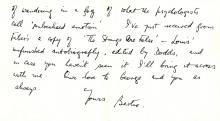 of wandering in a fog of what the psychologists
call 'unlocalised emotion'. I've just received from
Faber's a copy of 'The Strings Are False' – Louis'
unfinished autobiography, edited by Dodds, and
in case you haven't seen it I'll bring it across
with me. Give love to George and you as
always.
Yours
Bertie.